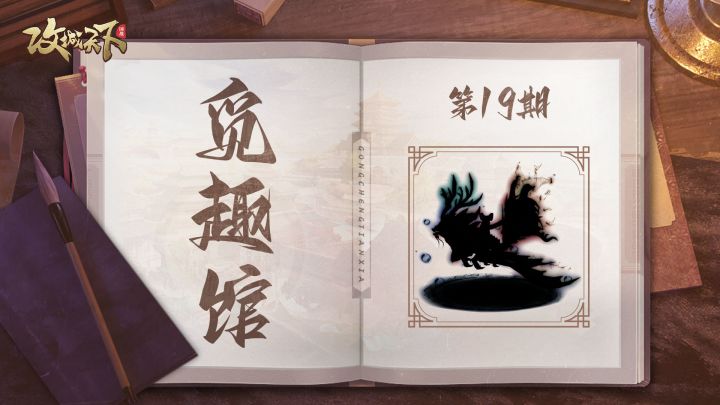 攻城天下
觅趣馆
GONGCHENGTIANXIA
第19期